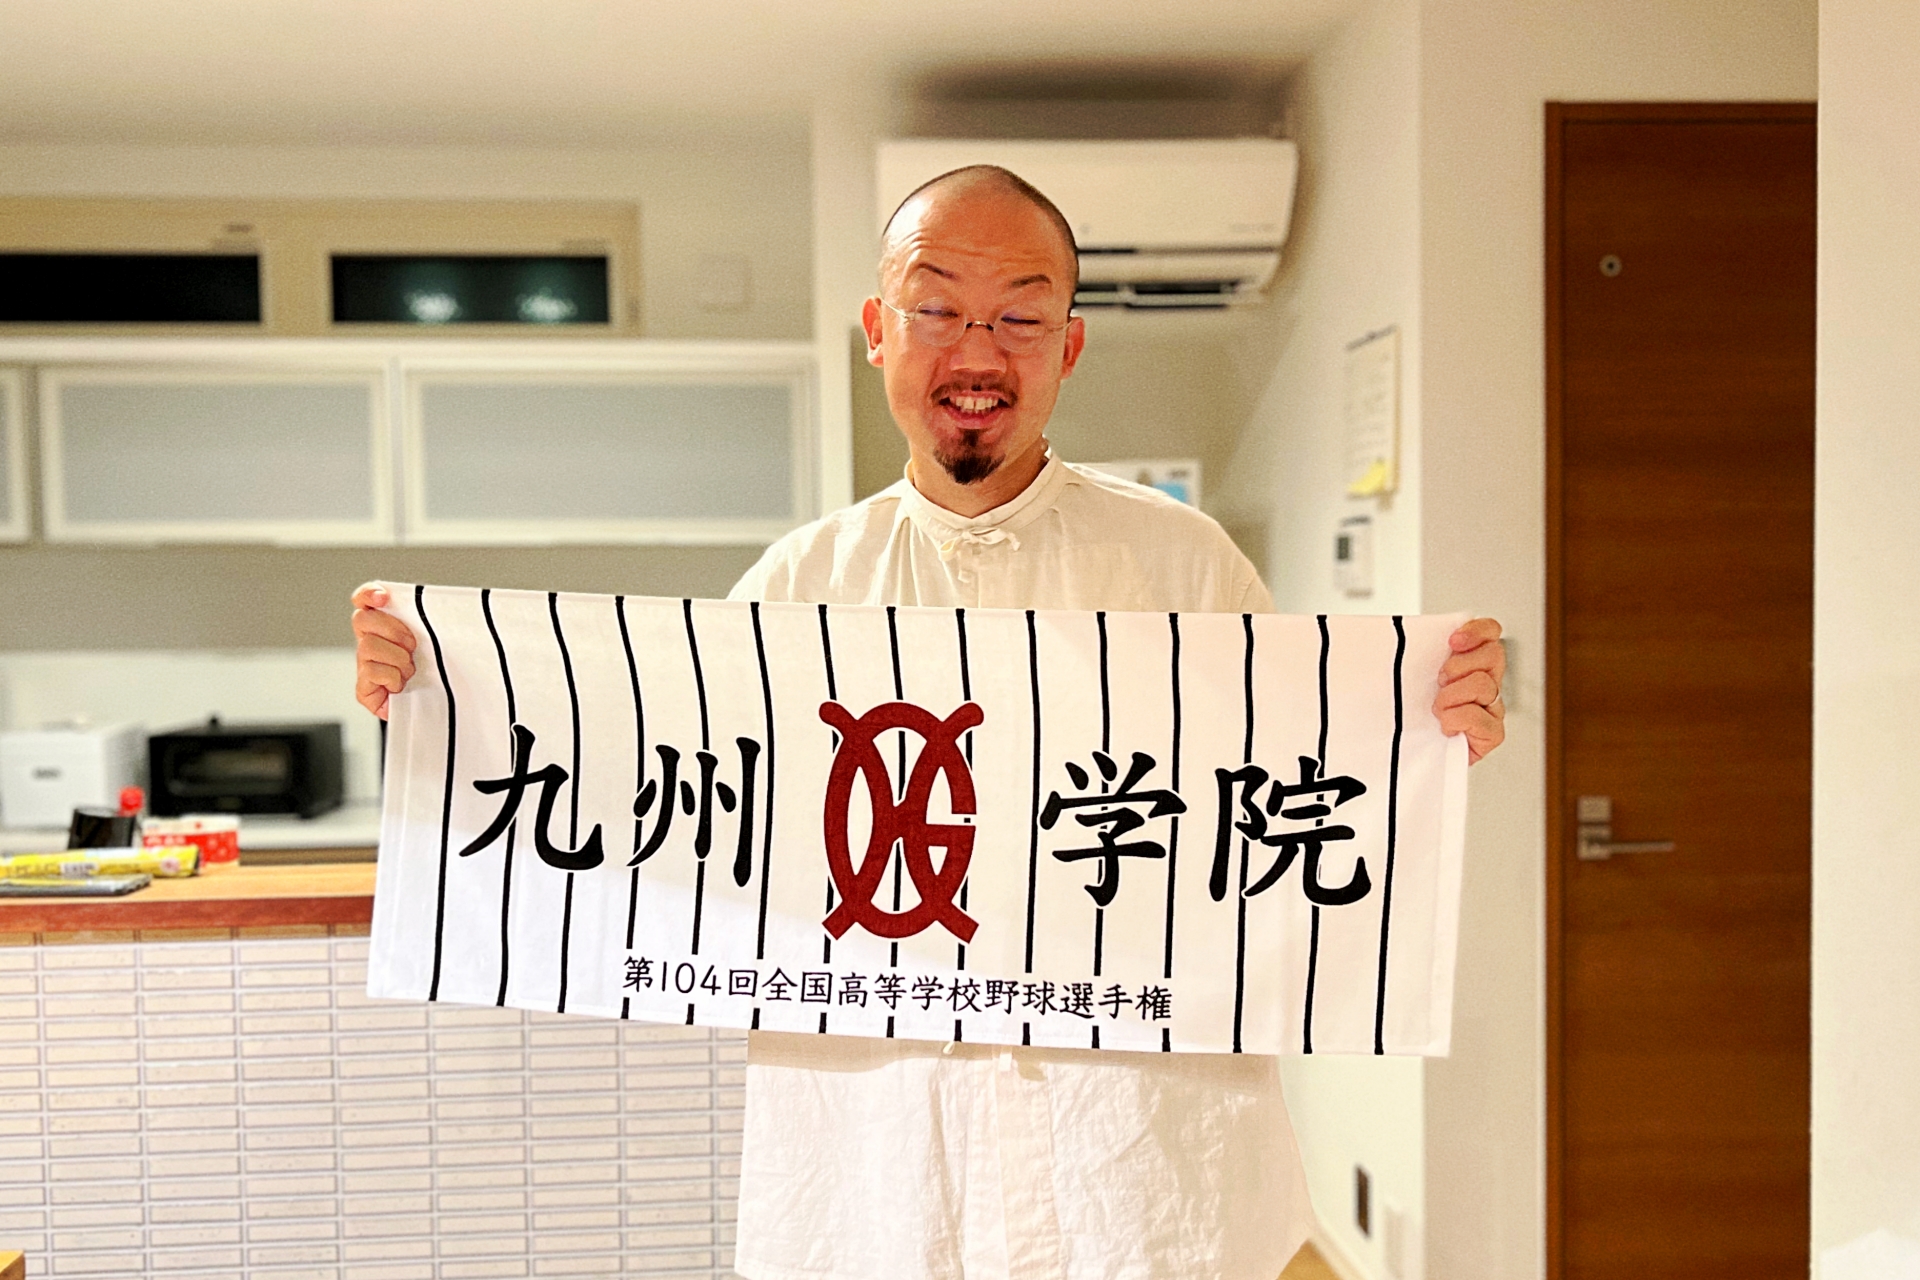 九州学院
第104回全国高等学校野球選手権